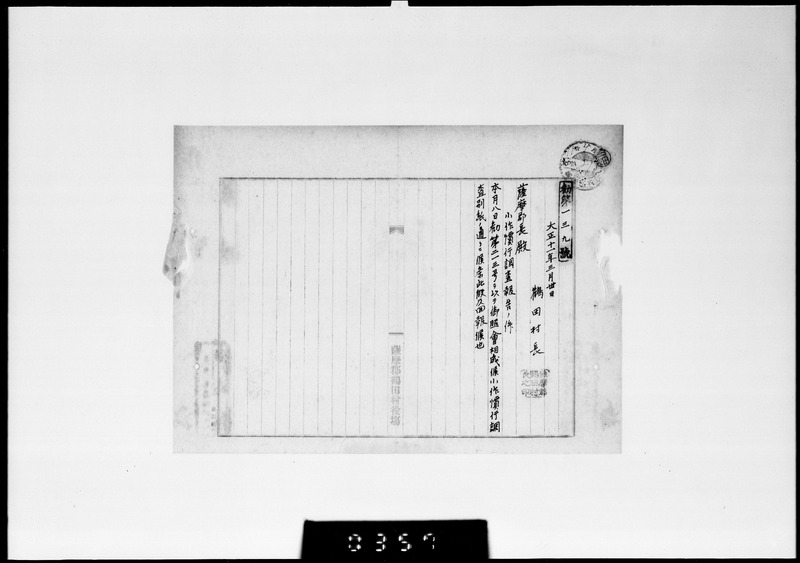 勧第一三九號
大正十一年三月廿日
鶴田村長
薩摩郡長殿
小作慣行調査報告ノ件
本月八日勧第二一三号ヲ以テ御照會相成候小作慣行調
査別紙ノ通ニ候条此段及回報候也
薩摩郡鶴田村役場
0357